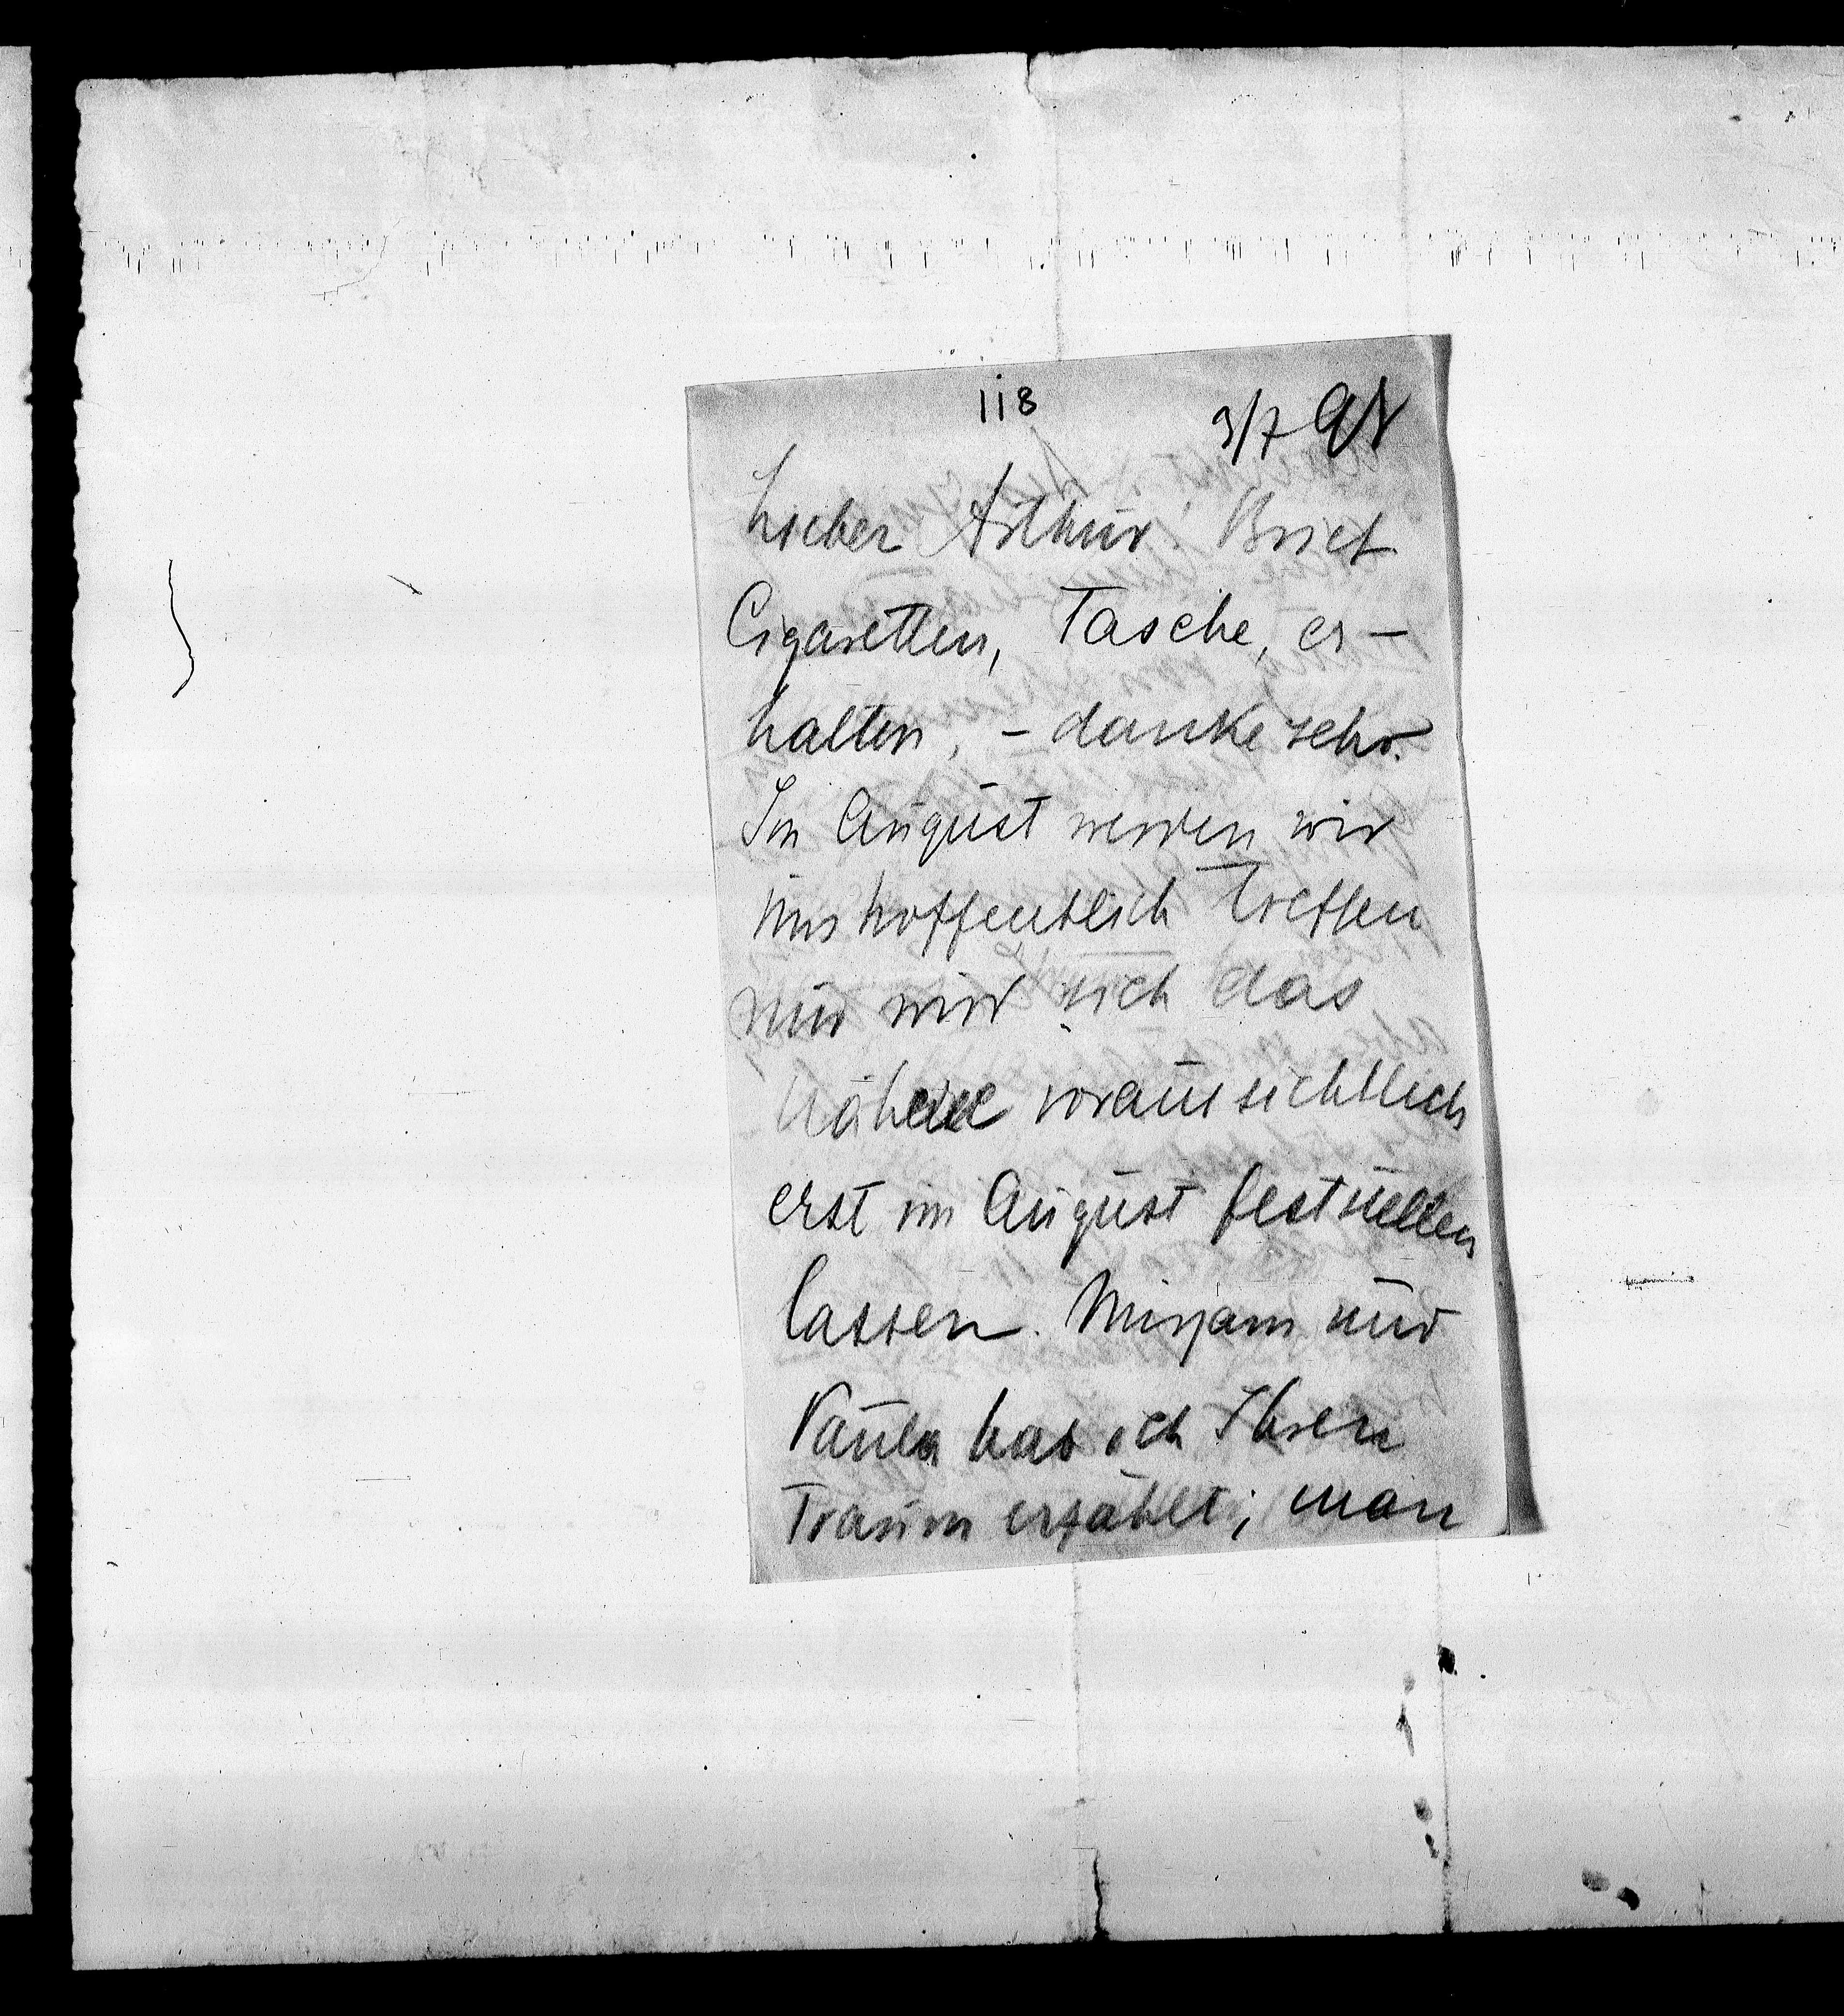 118
9/7 98
Lieber Arthur! Brief
Cigaretten, Tasche, er–
halten, – danke sehr.
Im August werden wir
uns hoffentlich treffen
nur wird sich das
nähere voraussichtlich
erst im August feststellen
lassen. Mirjam und
Paula hab ich Ihren
Traum erzählt; man